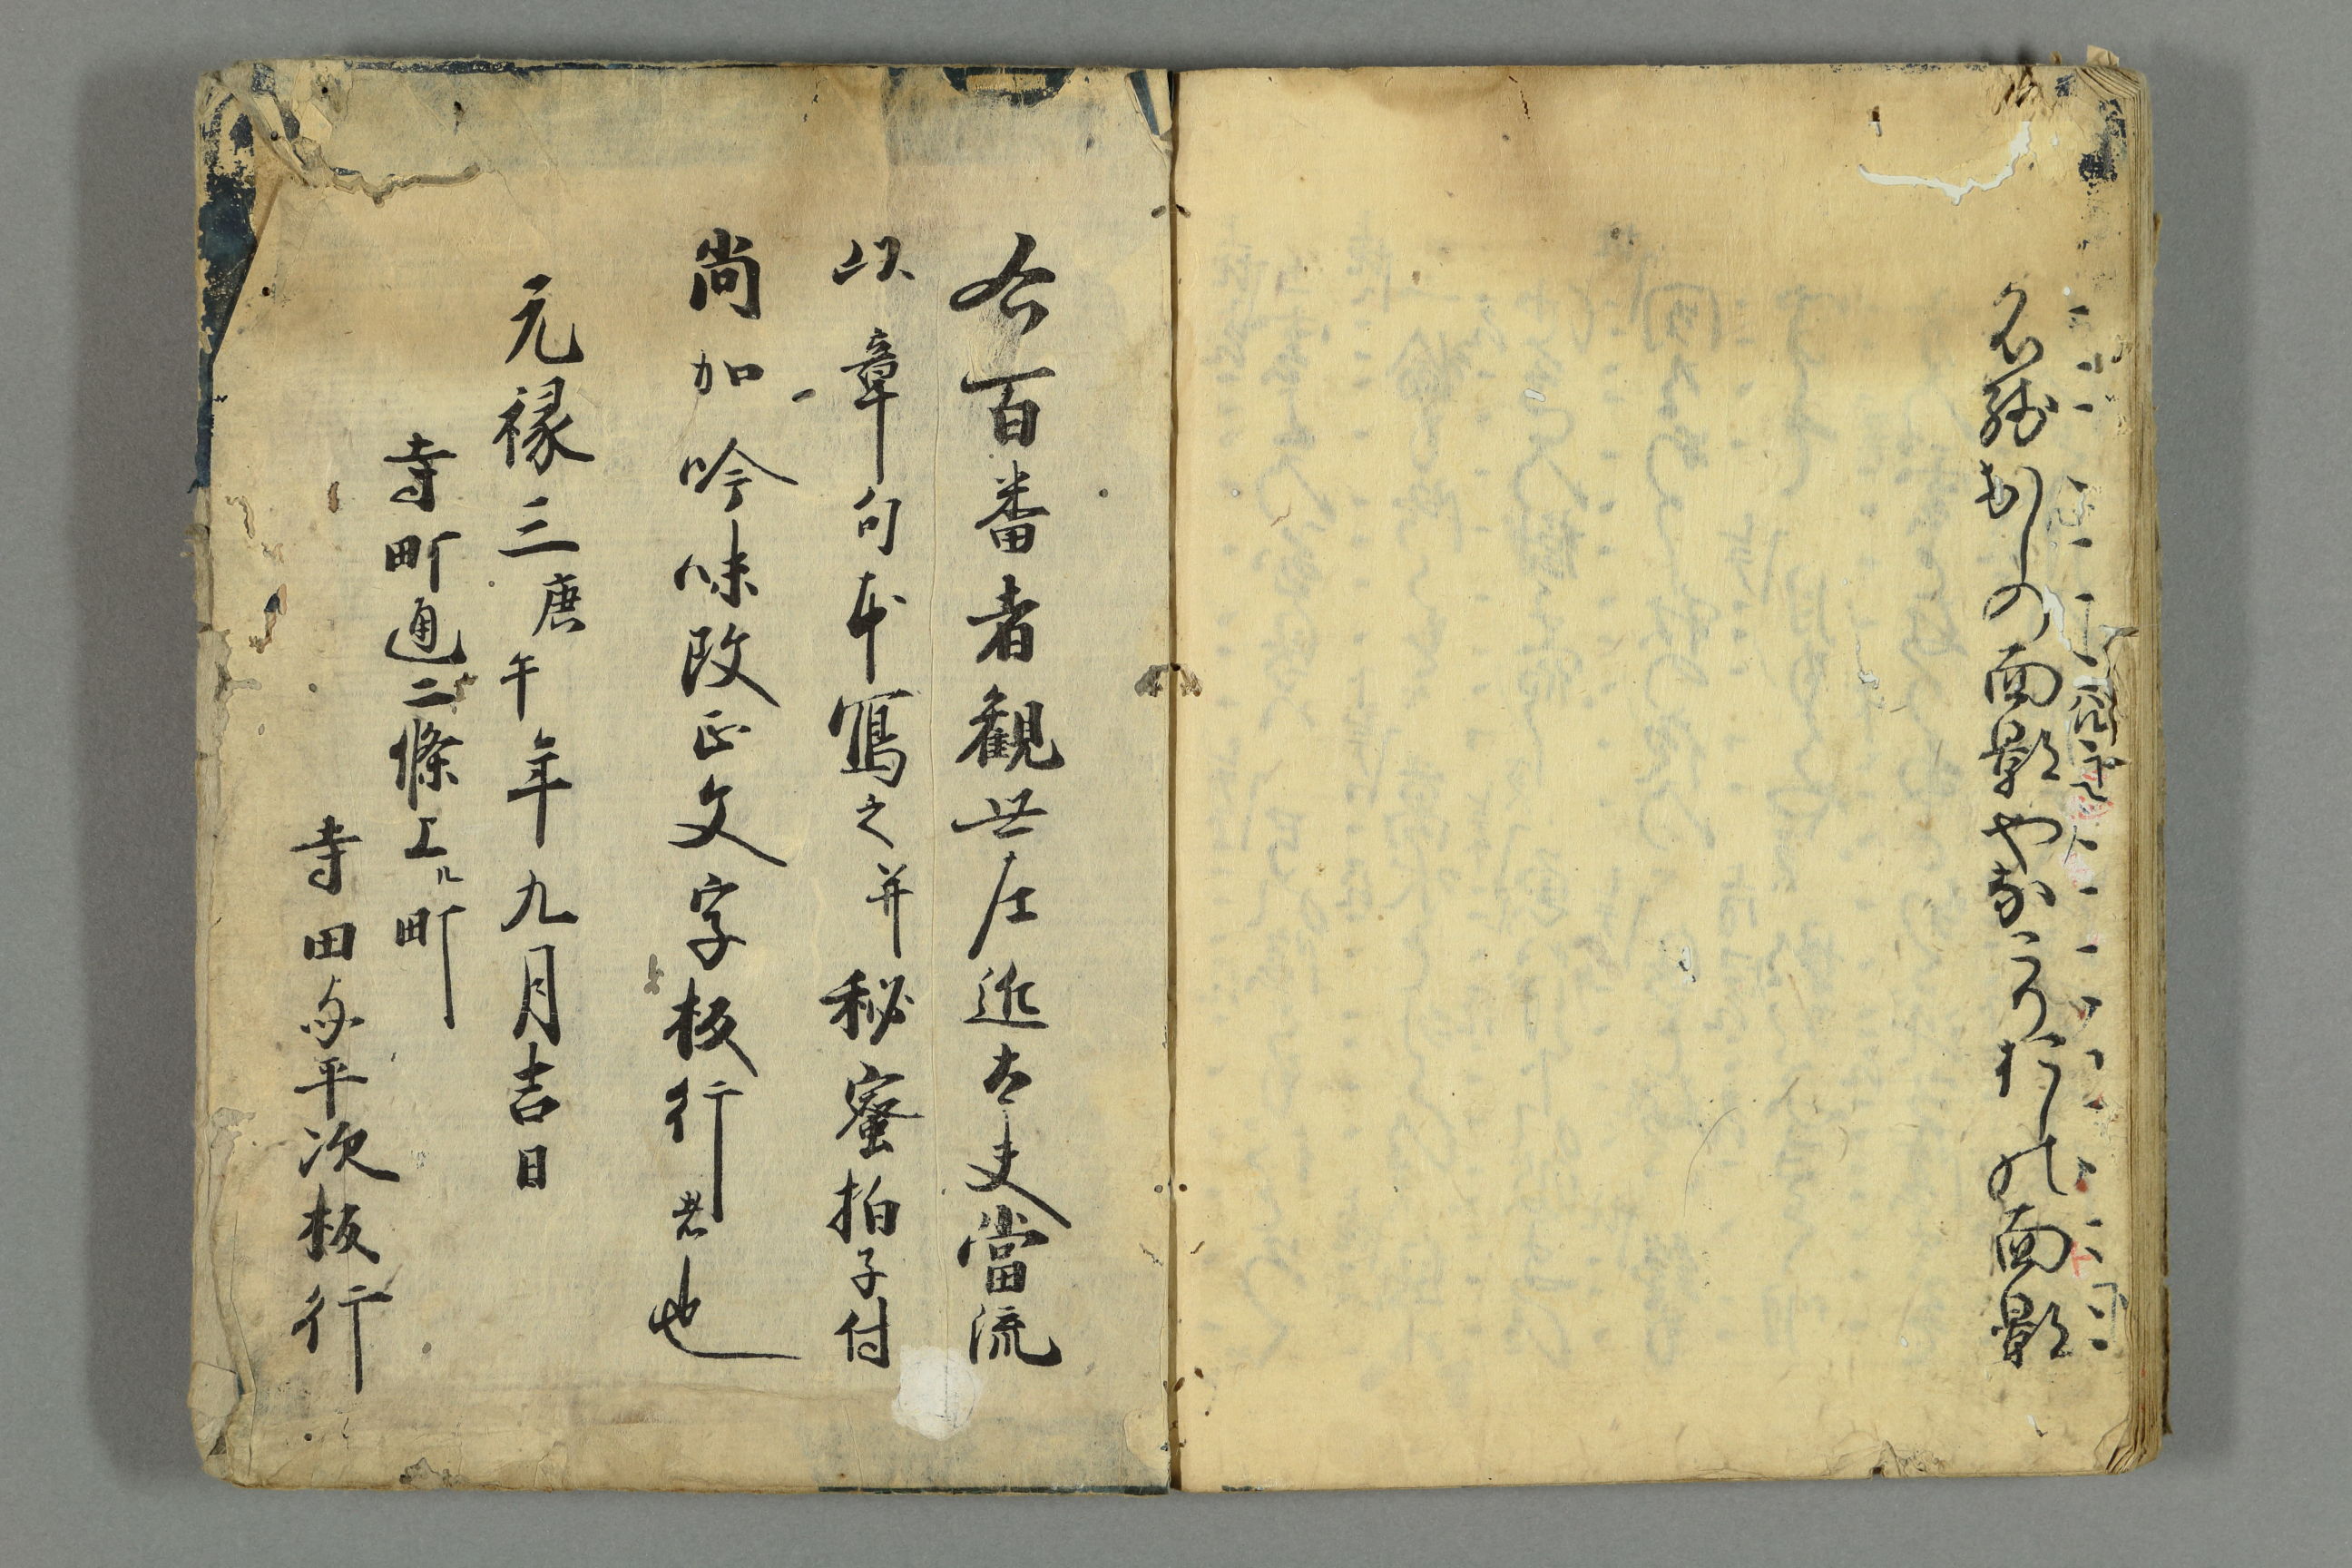 名残おしの面影やなこりおしの面影
右百番者観世左近太夫當流
以章句本寫之并秘蜜拍子付
尚加吟味改正文字板行者也
元禄三庚午年九月吉日
寺町通二條上ル町
寺田与平次板行